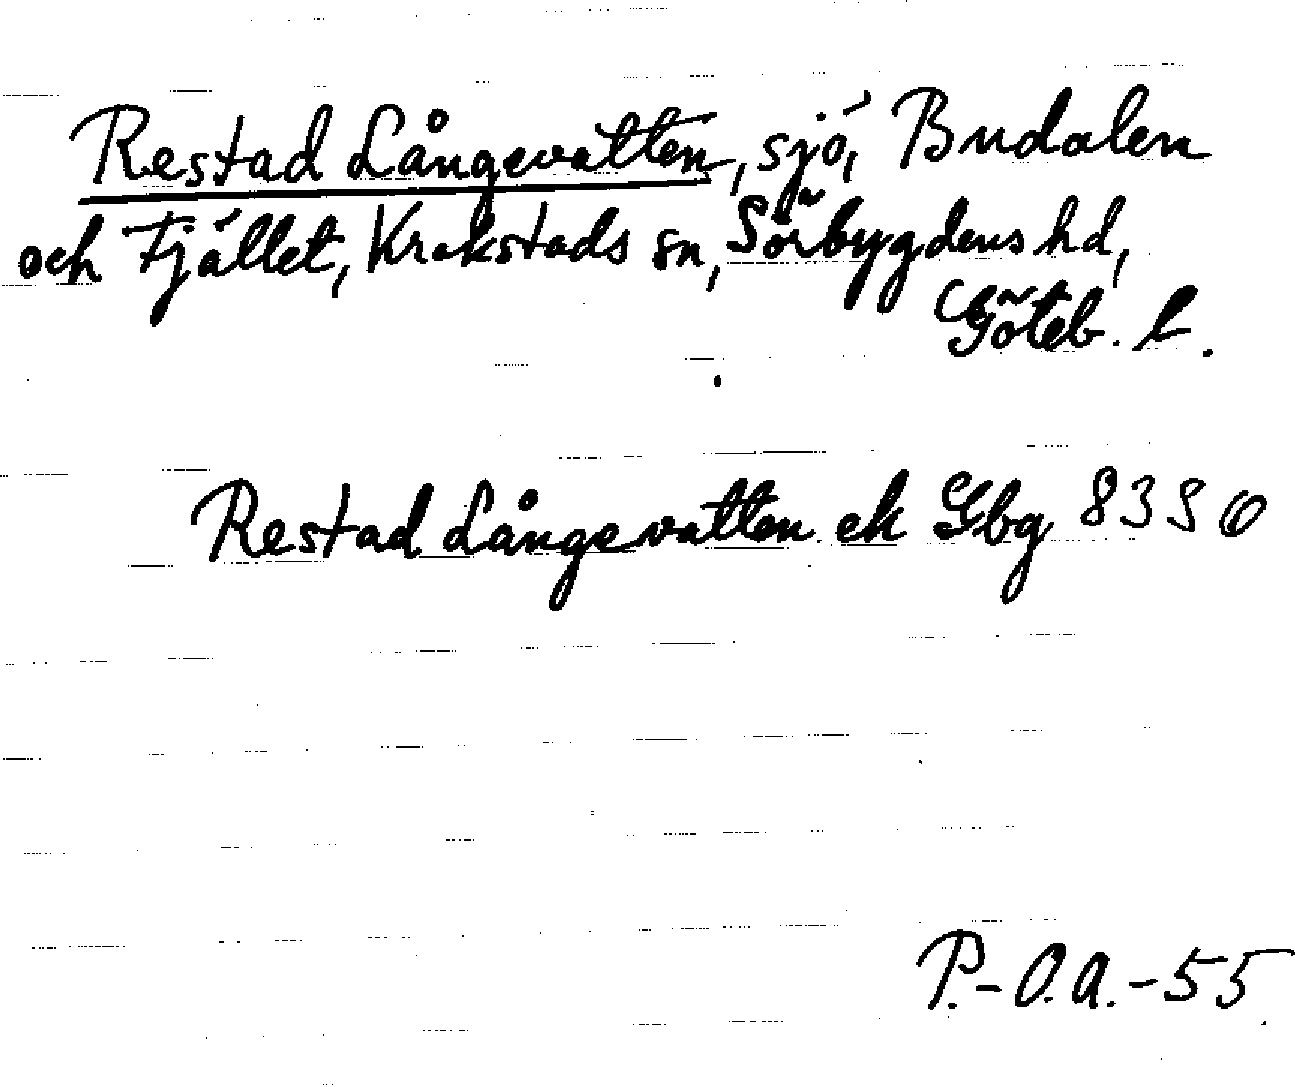 Restad Långevatten, sjö, Budalen
och Fjället, Krokstads sn, Sörbygdens hd,
Göteb. l.
Restad Långevatten ek Gbg 8350
P.-O.a.-55